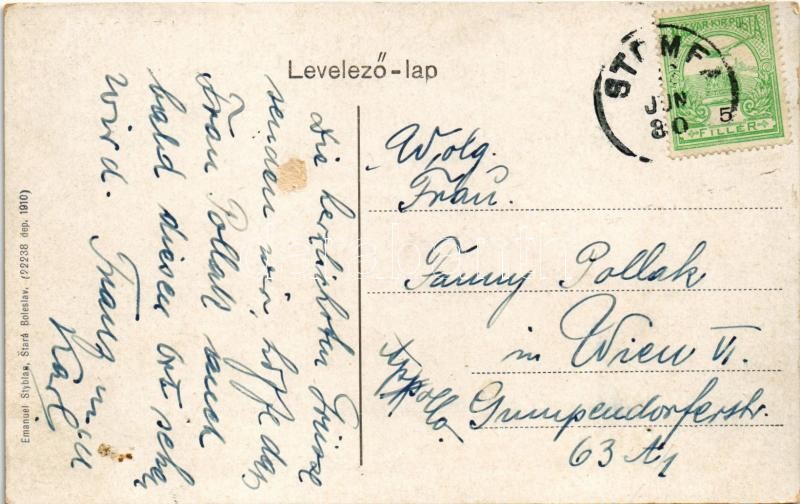 Levelező-lap
MAGYAR·KIR·POSTA
5
FILLÉR
STOMFA
JUN
30
Wolg.
Frau.
Fanny Pollak
in Wien VI.
Appollo
Gumpendorferstr.
63 A
Die herzlichsten Grüsse
senden wir, hoffe das
Frau Pollak auch
bald diesen Ort sehen
wird. Franz und
Karl
Emanuel Styblan, Štará Boleslav, (22238 dep. 1910)